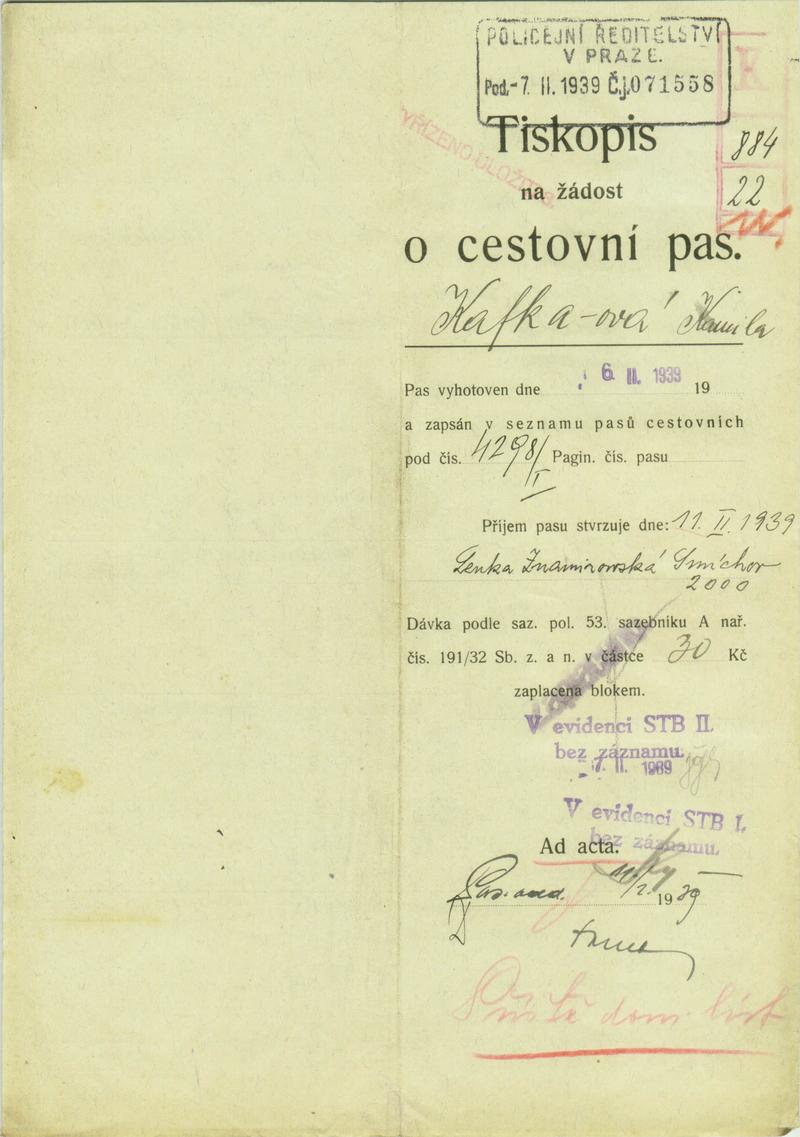 POLICEJNÍ ŘEDITELSTVÍ
V PRAZE.
Pod. -7. II. 1939 Č.j. 071558
Tiskopis
884
VYŘÍZENO ULOŽIT
na žádost
22
o cestovní pas.
Kafka-ová Kamila
Pas vyhotoven dne 6. II. 1939 19
a zapsán v seznamu pasů cestovních
pod čís. 4298/I Pagin. čís. pasu
Příjem pasu stvrzuje dne: 11. II. 1939
Lenka Znamirowská Smíchov
2000
Dávka podle saz. pol. 53. sazebníku A nař.
čís. 191/32 Sb. z. a n. v částce 30 Kč
zaplacena blokem.
V evidenci STB II.
bez záznamu.
-7. II. 1939
V evidenci STB I.
bez záznamu.
Ad acta.
19 39
Příště dom. list